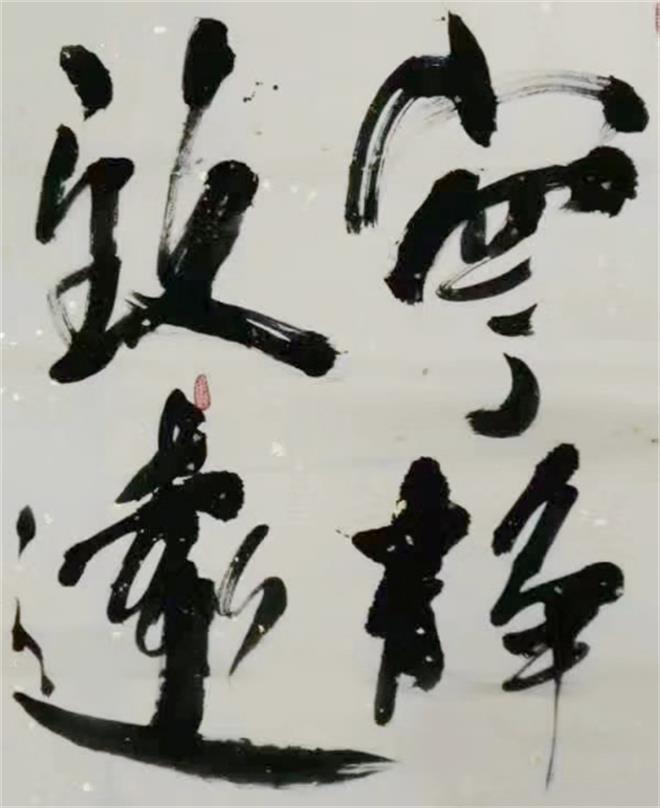 寧靜
致遠